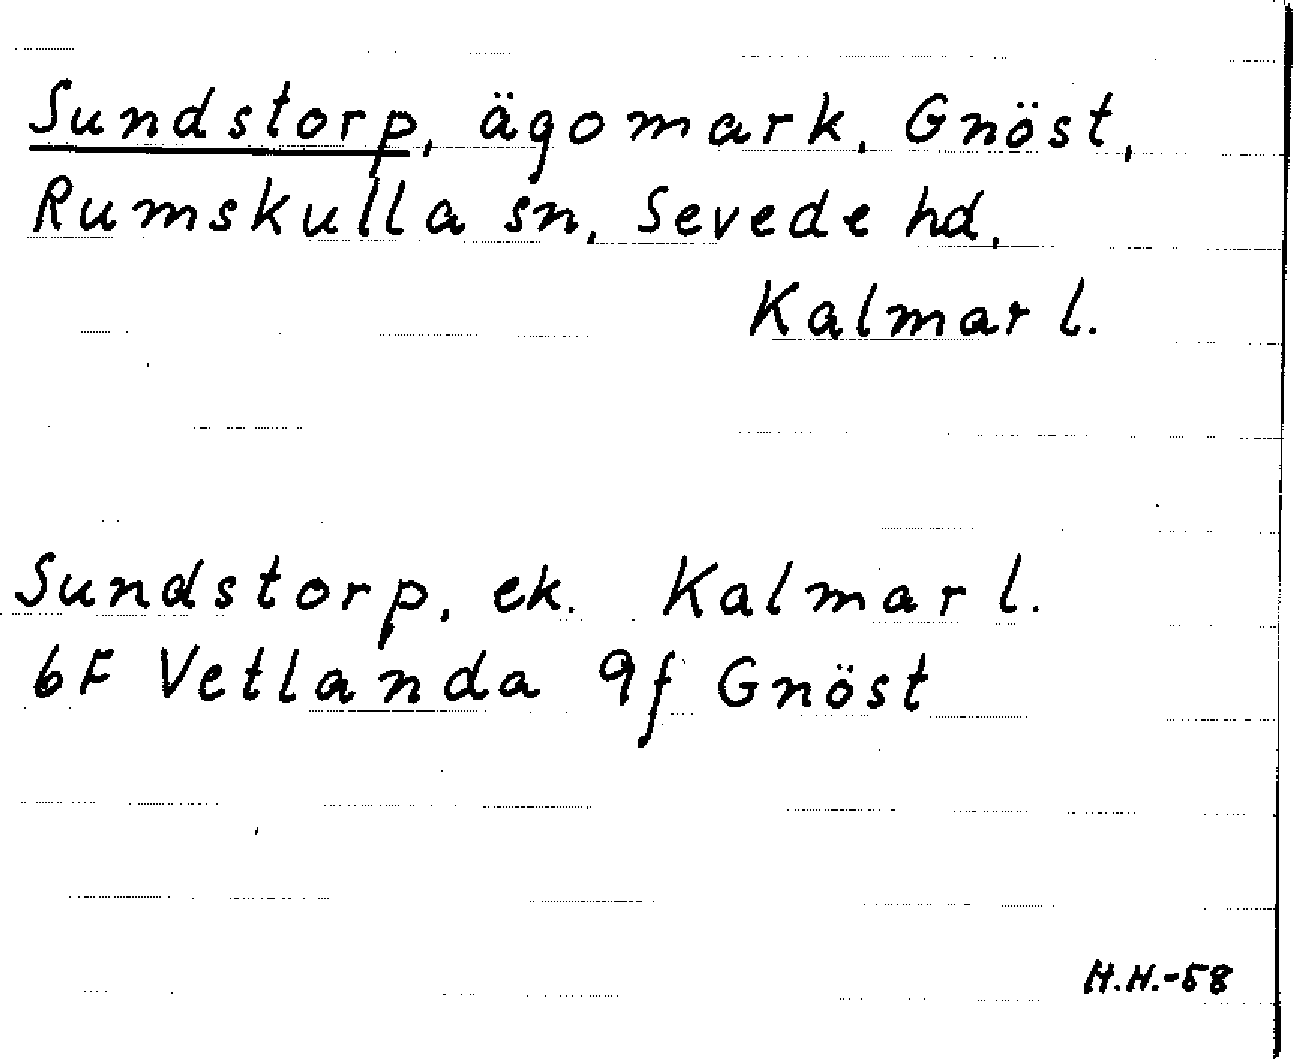 Sundstorp, ägomark, Gnöst,
Rumskulla sn, Sevede hd,
Kalmar l.
Sundstorp, ek. Kalmar l.
6F Vetlanda 9f Gnöst
H.H.-58